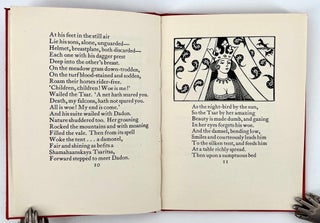 At his feet in the still air
Lie his sons, alone, unguarded—
Helmet, breastplate, both discarded—
Each one with his dagger prest
Deep into the other's breast.
On the meadow grass down-trodden,
On the turf blood-stained and sodden,
Roam their horses rider-free.
'Children, children! Woe is me!'
Wailed the Tsar. 'A net hath snared you.
Death, my falcons, hath not spared you.
All is woe! My end is come.'
And his suite wailed with Dadon.
Nature shuddered too. Her groaning
Rocked the mountains and with moaning
Filled the vale. Then from its spell
Woke the tent... a damozel,
Fair and shining as befits a
Shamahanskaya Tsaritsa,
Forward stepped to meet Dadon.
10
As the night-bird by the sun,
So the Tsar by her amazing
Beauty is made dumb, and gazing
In her eyes forgets his woe.
And the damsel, bending low,
Smiles and courteously leads him
To the silken tent, and feeds him
At a table richly spread.
Then upon a sumptuous bed
11